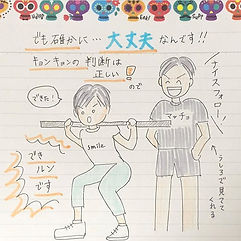 でも確かに…大丈夫なんです!!
キョンキョンの判断は
正しい!ので
ナイスフォロー!
できた!
マッチョ
smile
うしろで見てて
くれる
でき
ルン
です